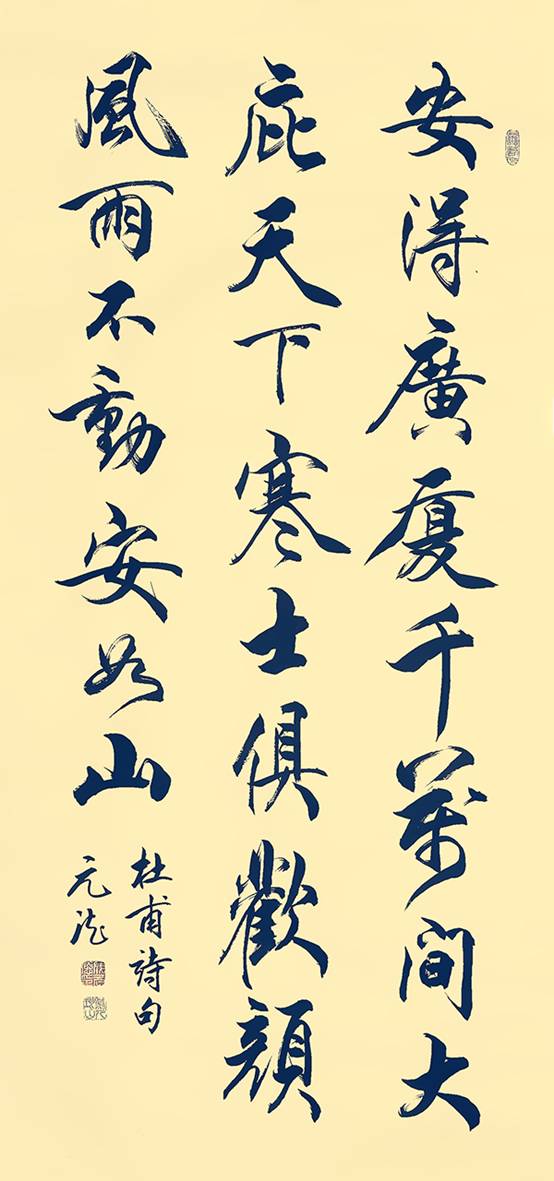 安得廣廈千萬間大
庇天下寒士俱歡顔
風雨不動安如山
杜甫詩句
元法